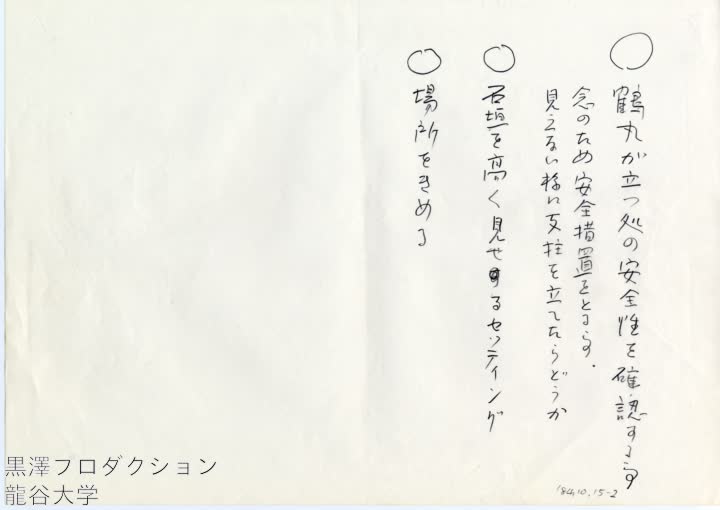 ○ 鶴丸が立つ処の安全性を確認する事
念のため安全措置をとる事.
見えない様に支柱を立てたらどうか
○ 石垣を高く見せするセッティング
○ 場所をきめる
'84,10,15-2
黒澤プロダクション
龍谷大学